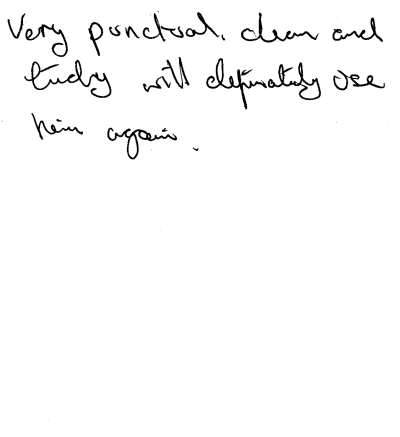 Very punctual, clean and
tidy will definately use
him again.